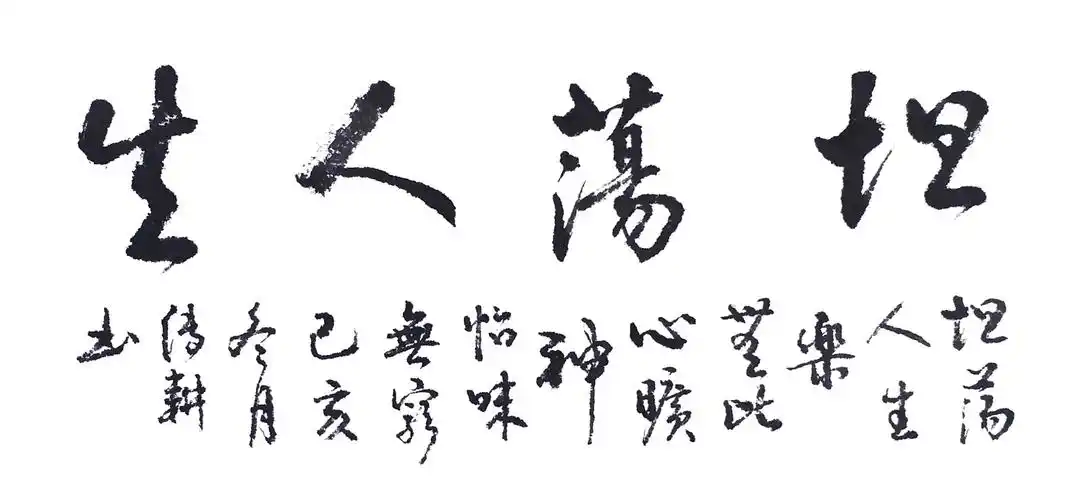 坦蕩人生
坦蕩
人生
樂
無比
心曠
神
怡味
無窮
己亥
冬月
傳耕
书